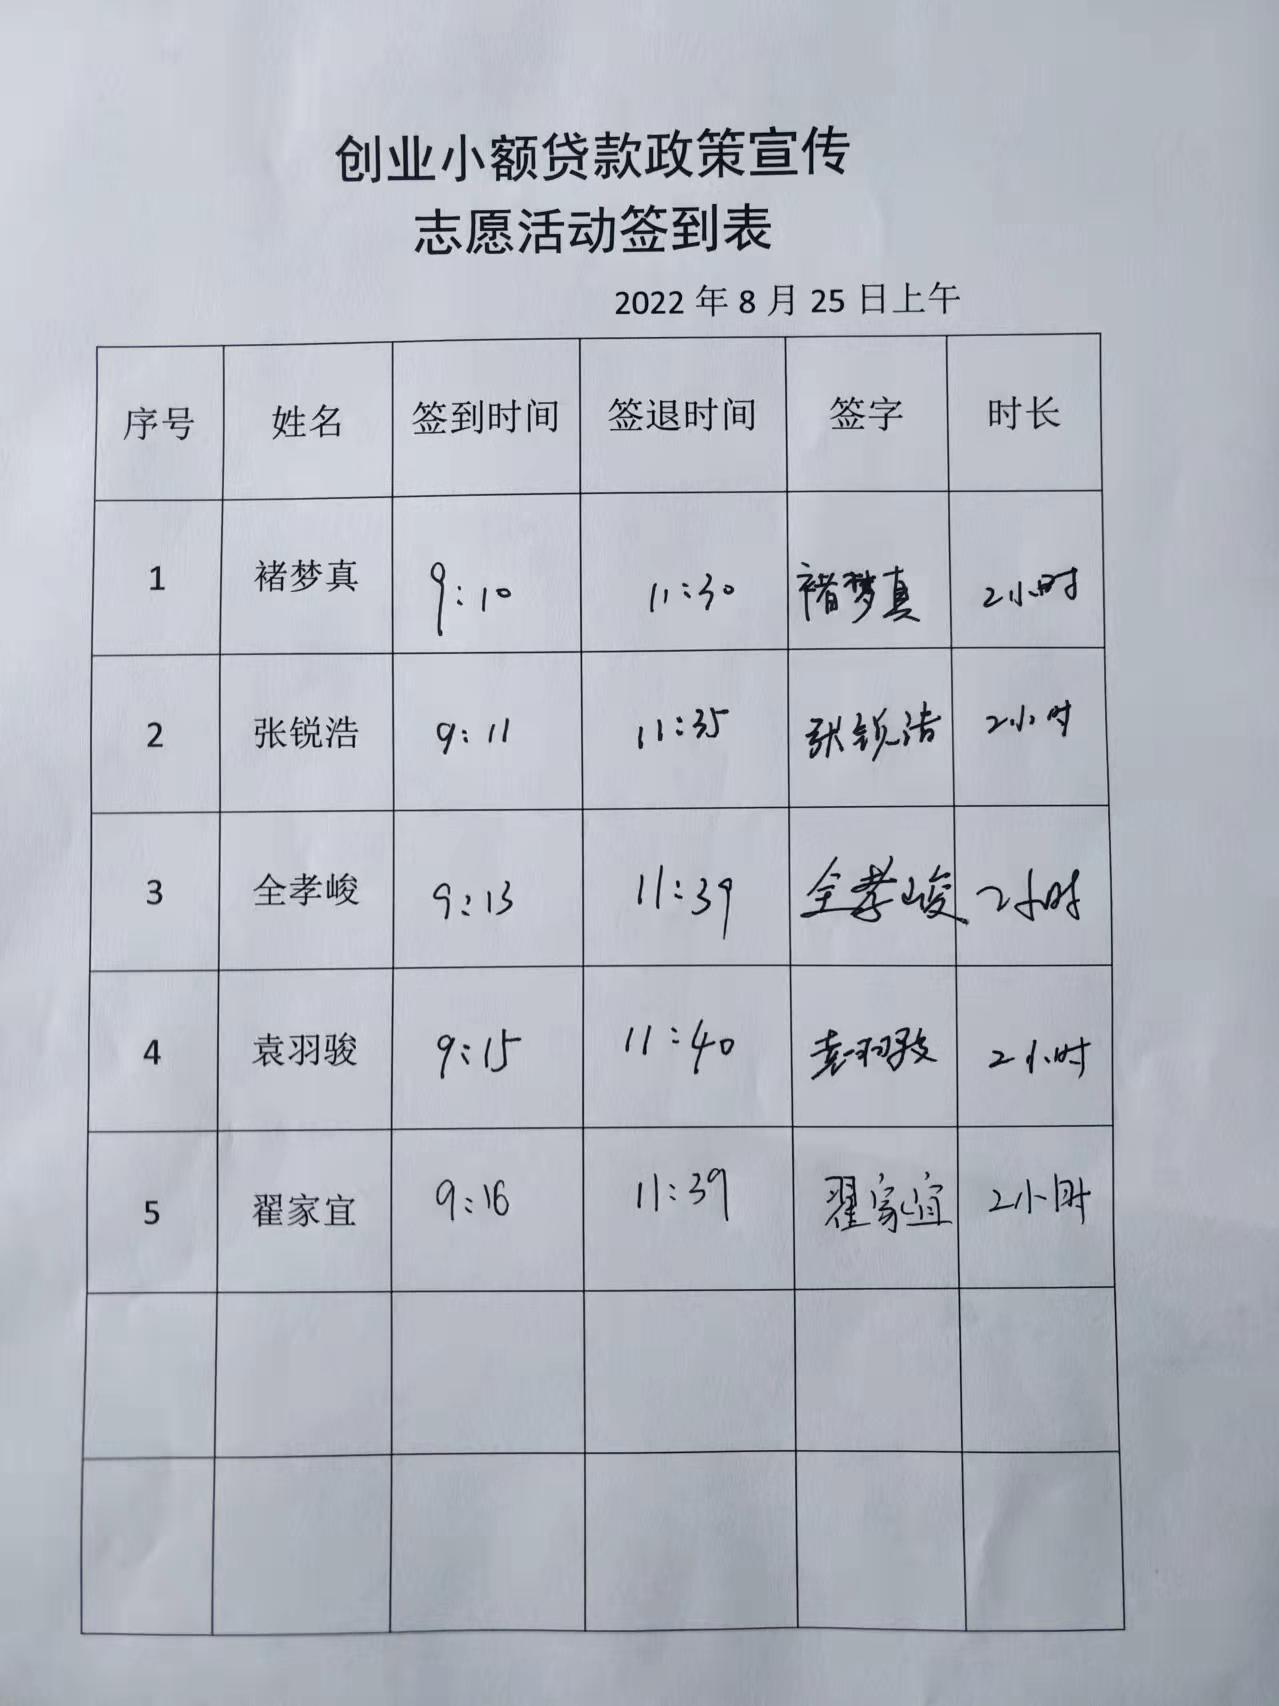 创业小额贷款政策宣传
志愿活动签到表
2022 年 8 月 25 日上午
序号 姓名 签到时间 签退时间 签字 时长
1 褚梦真 9:10 11:30 褚梦真 2小时
2 张锐浩 9:11 11:35 张锐浩 2小时
3 全孝峻 9:13 11:39 全孝峻 2小时
4 袁羽骏 9:15 11:40 袁羽骏 2小时
5 翟家宜 9:16 11:39 翟家宜 2小时